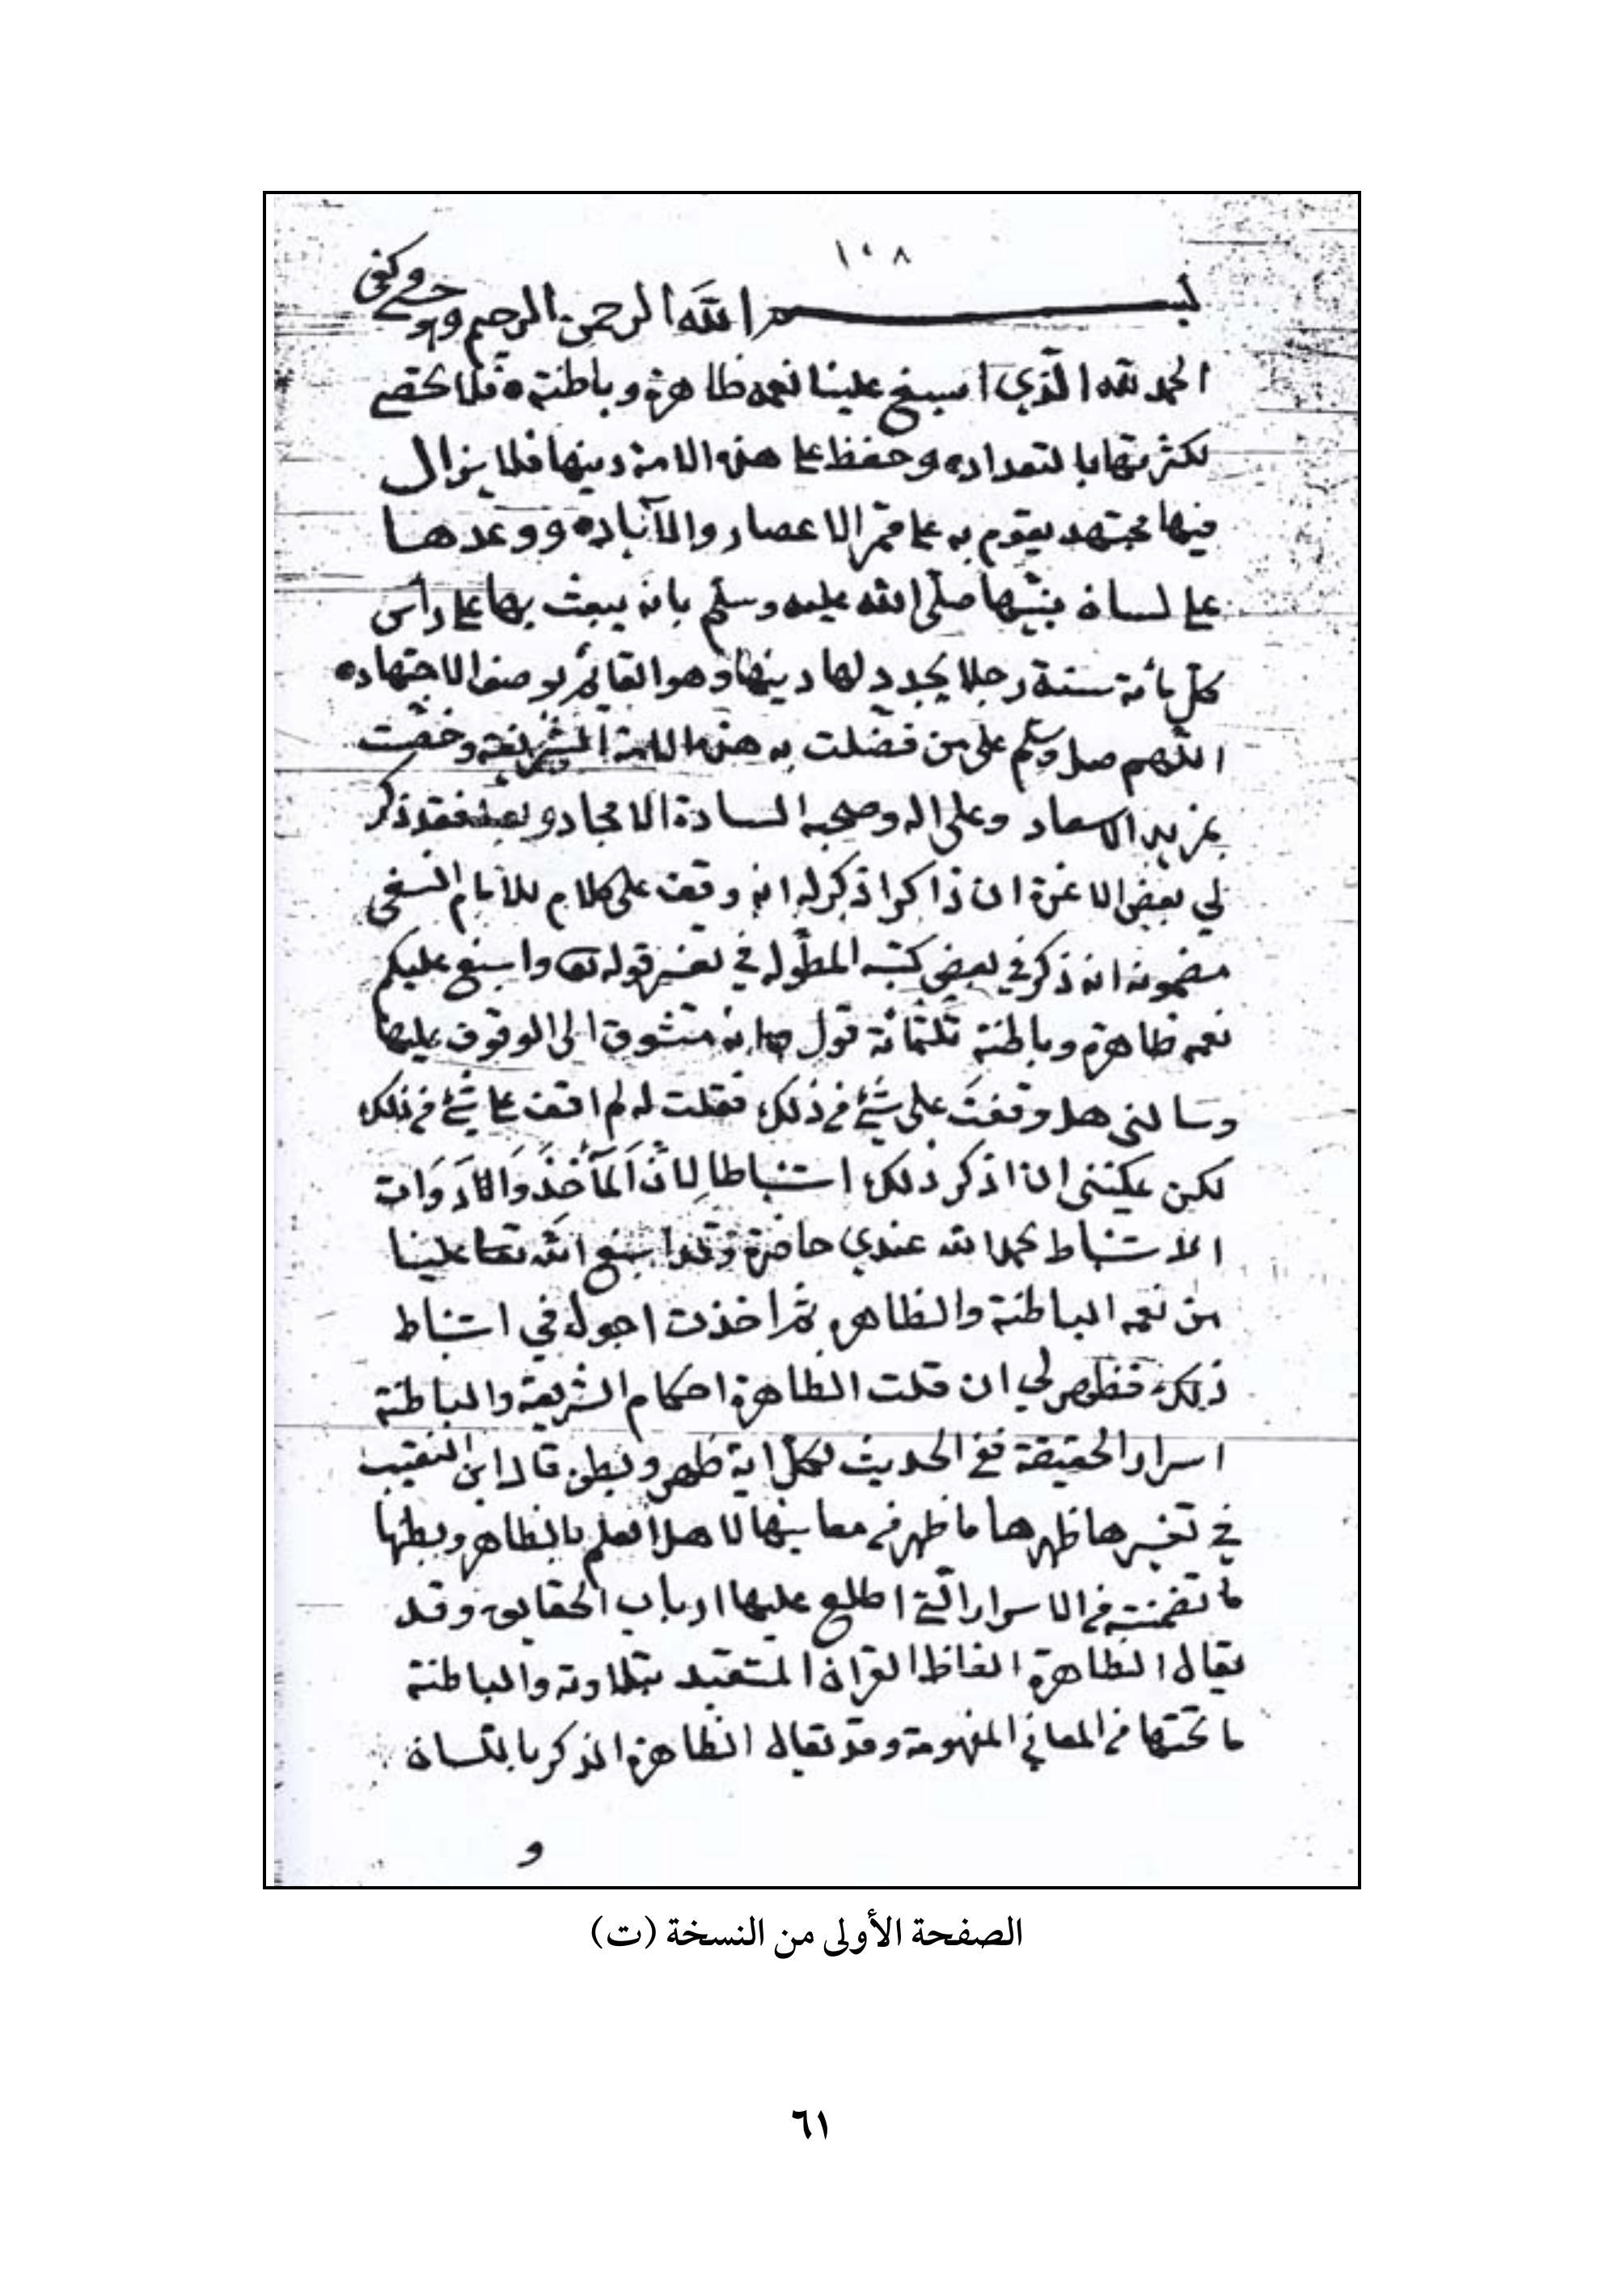 ١٠٨
بسم الله الرحمن الرحيم وبه حسبي وكفى
الحمد لله الذي اسبغ علينا نعمه ظاهرة وباطنة ه فلا تحصى
لكثرتها بالتعداد ه وحفظ على هذه الامة دينها فلا يزال
فيها مجتهد يقوم به على ممر الاعصار والآباد ه ووعدها
على لسان نبيّها صلّى الله عليه وسلّم بانه يبعث بها على رأس
كلّ مائة سنة رجلا يجدد لها دينها وهو القائم بوصف الاجتهاد ه
اللّهم صل وسلم على من فضّلت به هذه الامة الشريفة وخصّت
بمزيد الاسعاد وعلى اله وصحبه السادة الامجاد وبعد فقد ذكر
لي بعض الاعزة ان ذاكرا ذكر له انه وقف على كلام للامام النسفي
مضمونه انه ذكر في بعض كتبه المطوله في تفسير قوله تعا واسبغ عليكم
نعمه ظاهرة وباطنة ثلثمائة قول وانه متشوق الى الوقوف عليها
وسالني هل وقفتَ على شئ من ذلك فقلت له لم اقف على شئ من ذلك
لكن يمكنني ان اذكر ذلك استنباطا لِانّ اَلمآخِذَ وَالادَوَات
الاستنباط بحمد الله عندي حاضرة وقد اسبغ الله تعا علينا
من نعمه الباطنة والظاهره ثم اخذت اجول في استنباط
ذلك فظهر لي ان قلت الظاهرة احكام الشريعة والباطنة
اسرار الحقيقة ففي الحديث لكل اية ظهر وبطن قال ابن النقيب
في تفسيرها ظهرها ما ظهر من معانيها لاهل العلم بالظاهر وبطنها
ما تضمنته من الاسرار الّتي اطلع عليها ارباب الحقايق وقد
يقال الظاهرة الفاظ القران المتعبد بتلاوته والباطنة
ما تحتها من المعاني المفهومة وقد يقال الظاهرة الذكر باللسان
و
الصفحة الأولى من النسخة (ت)
٦١